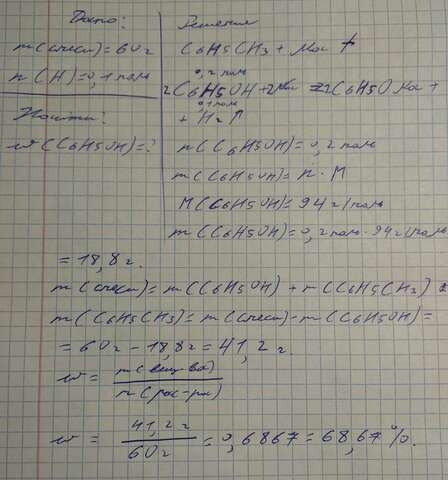 Дано:
m(смеси)=60г
n(H)=0,1 моль
Найти:
w(C6H5OH)=?
Решение
C6H5CH3 + Na ≠
0,2 моль
2C6H5OH+2Na=2C6H5ONa+
0,1 моль
+ H2↑
n(C6H5OH)=0,2 моль
m(C6H5OH)=n·M
M(C6H5OH)=94г/моль
m(C6H5OH)=0,2моль·94г/моль
=18,8г.
m(смеси)=m(C6H5OH)+m(C6H5CH3)
m(C6H5CH3)=m(смеси)-m(C6H5OH)=
=60г-18,8г=41,2г.
w= m(вещ-ва)
m(рас-ра)
w= 41,2г =0,6867=68,67%.
60г